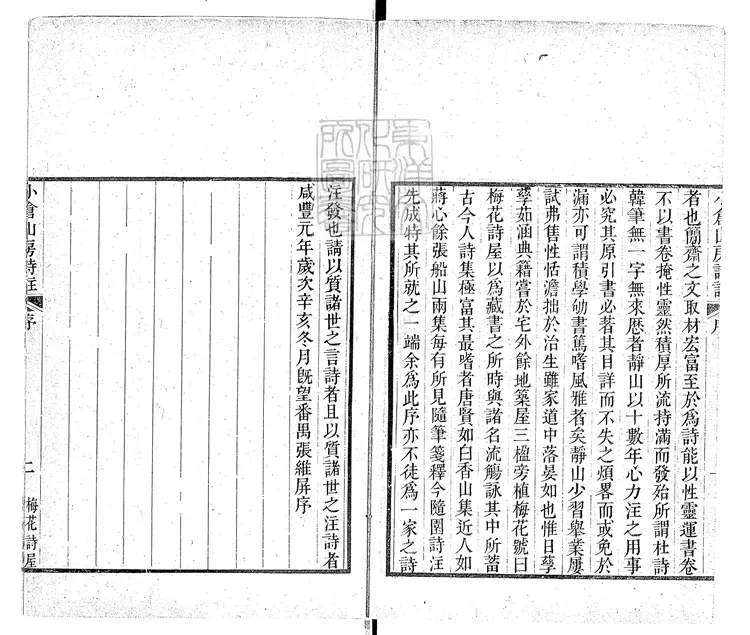 小倉山房詩註 序
者也簡齋之文取材宏富至於爲詩能以性靈運書卷
不以書卷掩性靈然積厚所流持滿而發殆所謂杜詩
韓筆無一字無來歷者靜山以十數年心力注之用事
必究其原引書必著其目詳而不失之煩畧而或免於
漏亦可謂積學劬書篤嗜風雅者矣靜山少習舉業屢
試弗售性恬澹拙於治生雖家道中落晏如也惟日孳
孳茹涵典籍嘗於宅外餘地築屋三楹旁植梅花號曰
梅花詩屋以爲藏書之所時與諸名流觴詠其中所蓄
古今人詩集極富其最嗜者唐賢如白香山集近人如
蔣心餘張船山兩集每有所見隨筆箋釋今隨園詩注
先成特其所就之一端余爲此序亦不徒爲一家之詩
注發也請以質諸世之言詩者且以質諸世之注詩者
咸豐元年歲次辛亥冬月旣望番禺張維屏序
小倉山房詩註 序 二 梅花詩屋